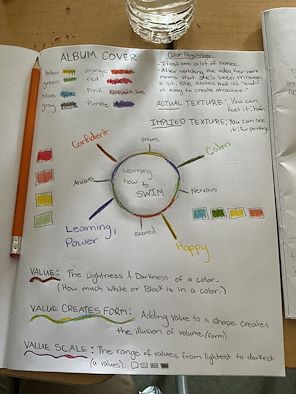 ALBUM COVER
Yellow
orange
green
red
blue
Pink
gray
Purple
Color Psychology
it has a lot of
After watching the video her work
of easy to create attractive."
ACTUAL TEXTURE: "You can
feel it:
IMPLIED TEXTURE: You can see
it:
Confident
unsure
Calm
Anxious
Learning
how to
SWIM
Nervous
Learning,
Power
scared
Happy
VALUE: The Lightness & Darkness of a color.
(How much White or Black is in a color.)
VALUE CREATES FORM: Adding value to a shape creates
the illusion of volume/(form).
VALUE SCALE: The range of values from lightest to darkest
(a values).